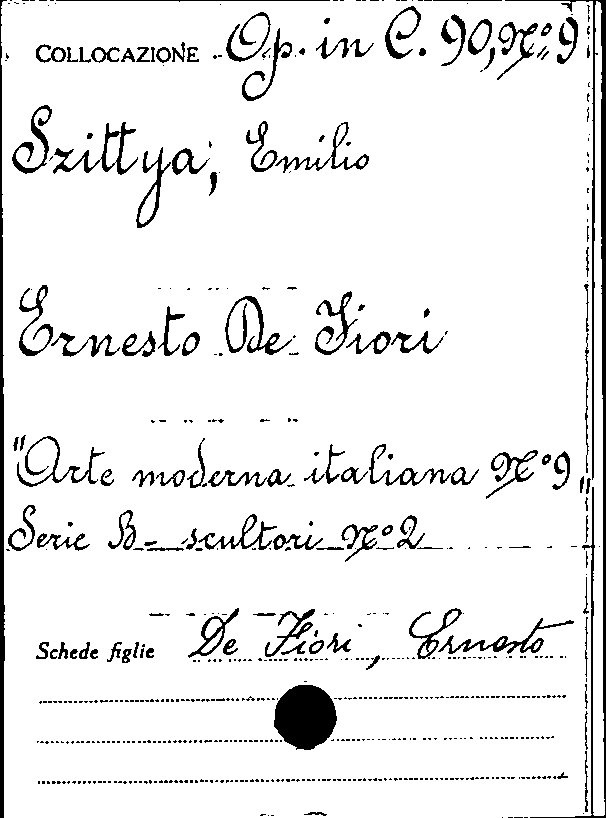 COLLOCAZIONE Op. in C. 90, N° 9
Szittya, Emilio
Ernesto De Fiori
"Arte moderna italiana N° 9"
Serie B - scultori N° 2
Schede figlie De Fiori, Ernesto